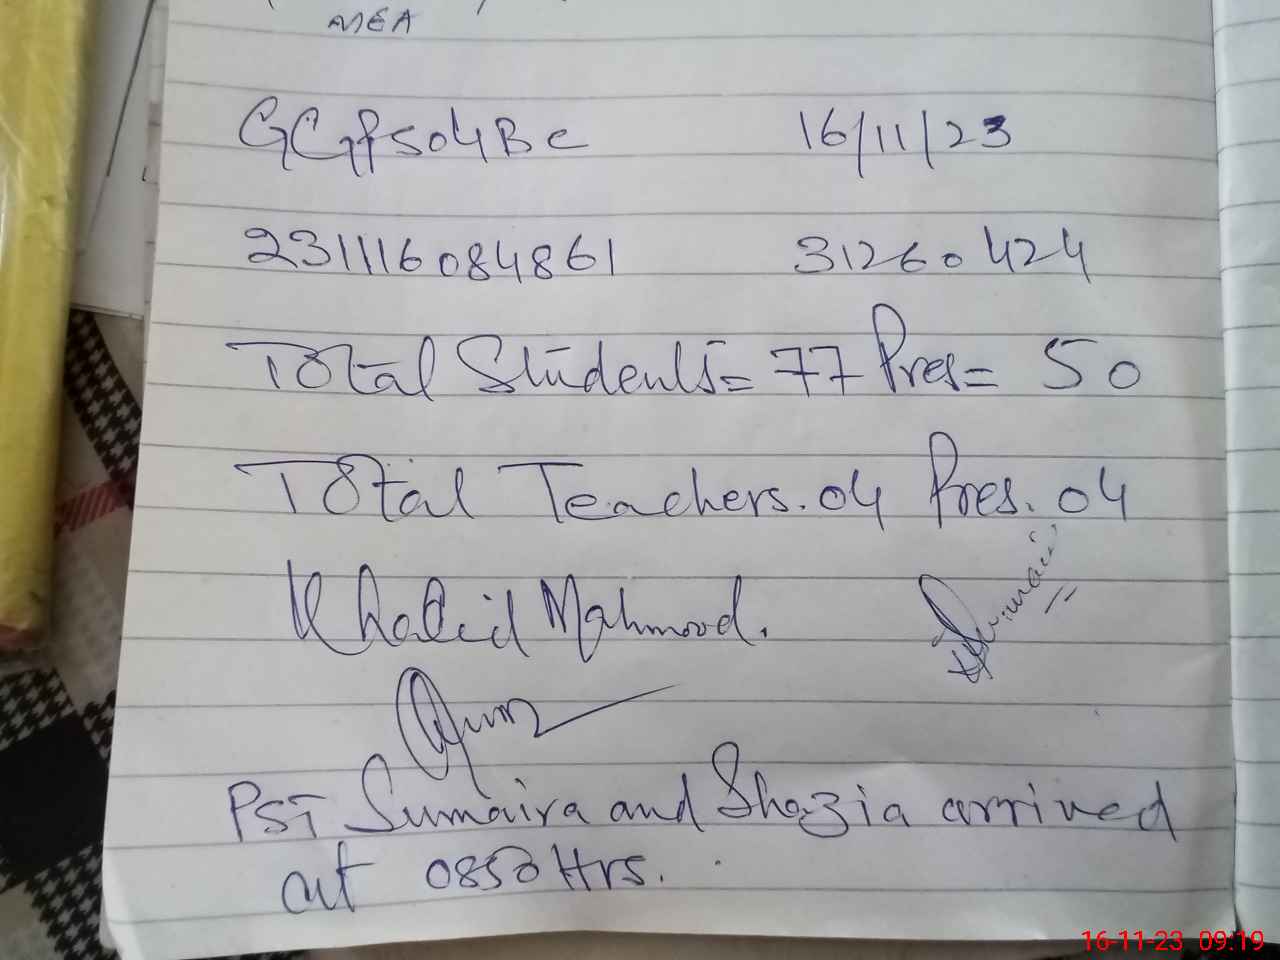 MEA
GGPS 04 BC 16/11/23
231116084861 31260424
Total Students= 77 Pres= 50
Total Teachers. 04 Pres. 04
Khalid Mahmood.
PST Sumaira and Shazia arrived
at 0850 Hrs.
16-11-23 09:19